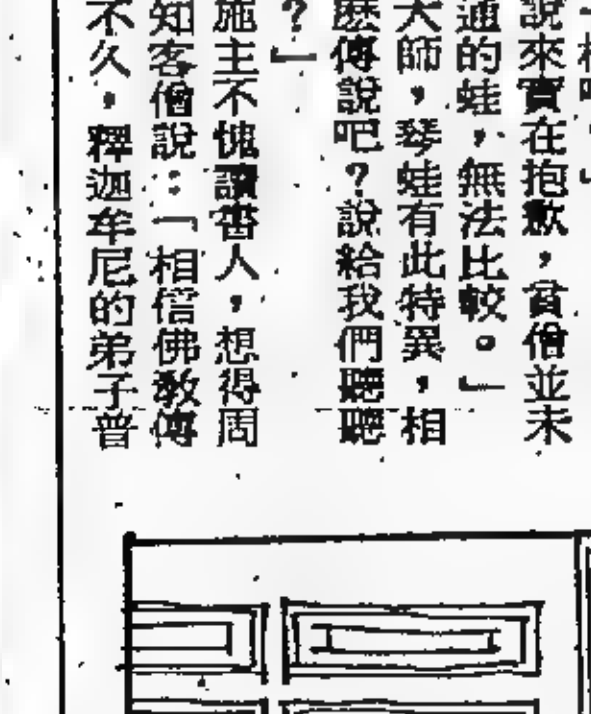 說來實在抱歉，貧僧並未
通的蛙，無法比較。」
大師，琴蛙有此特異，相
麼傳說吧？說給我們聽聽
？」
施主不愧讀書人，想得周
知客僧說：「相信佛教傳
不久，釋迦牟尼的弟子普